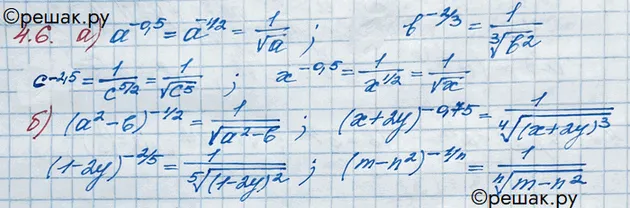 ©решак.ру
4.6. а) a^{-0,5} = a^{-1/2} = \frac{1}{\sqrt{a}} ; b^{-2/3} = \frac{1}{\sqrt[3]{b^2}}
c^{-2,5} = \frac{1}{c^{5/2}} = \frac{1}{\sqrt{c^5}} ; x^{-0,5} = \frac{1}{x^{1/2}} = \frac{1}{\sqrt{x}}
б) (a^2-b)^{-1/2} = \frac{1}{\sqrt{a^2-b}} ; (x+2y)^{-0,75} = \frac{1}{\sqrt[4]{(x+2y)^3}}
(1-2y)^{-2/5} = \frac{1}{\sqrt[5]{(1-2y)^2}} ; (m-n^2)^{-1/n} = \frac{1}{\sqrt[n]{m-n^2}}
©решак.ру